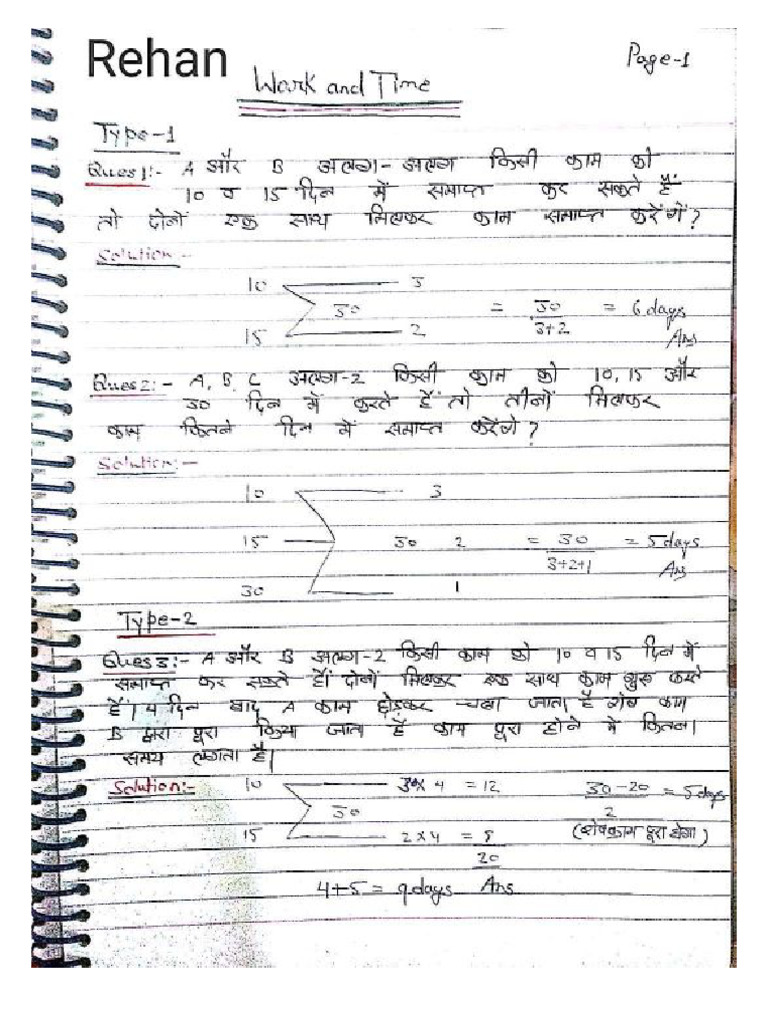 Rehan
Page-1
Work and Time
Type-1
Ques1:- A और B अलग-अलग किसी काम को
10 व 15 दिन में समाप्त कर सकते हैं
तो दोनों एक साथ मिलकर काम समाप्त करेंगें?
Solution:-
10 3
30 = 30/3+2 = 6 days
15 2 Ans
Ques2:- A, B, C अलग-2 किसी काम को 10, 15 और
30 दिन में करते हैं तो तीनों मिलकर
काम कितने दिन में समाप्त करेंगे?
Solution:-
10 3
15 30 2 = 30/3+2+1 = 5 days
30 1 Ans
Type-2
Ques3:- A और B अलग-2 किसी काम को 10 व 15 दिन में
समाप्त कर सकते हैं। दोनों मिलकर एक साथ काम शुरू करते
हैं। 4 दिन बाद A काम छोड़कर चला जाता है शेष काम
B द्वारा पूरा किया जाता है काम पूरा होने में कितना
समय लगता है।
Solution:- 10 3×4 = 12 30-20/2 = 5 days
30
15 2×4 = 8 (शेष काम पूरा होगा)
20
4+5 = 9 days Ans